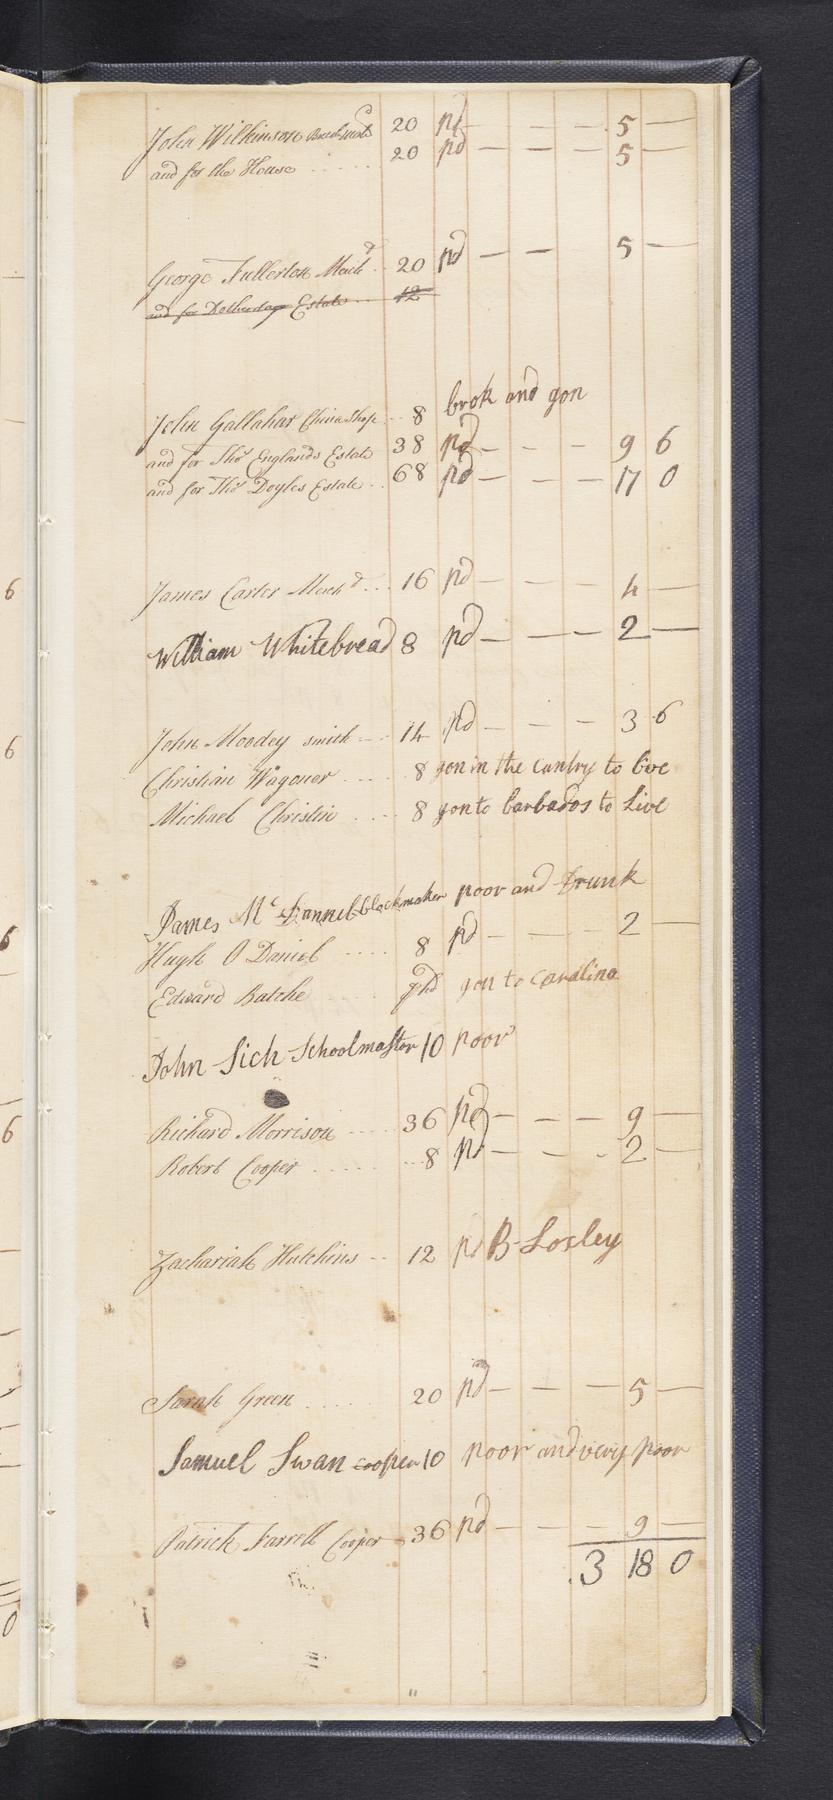 John Wilkinson 20 pd — — 5 —
and for the House 20 pd — — — 5 —
George Fullerton Mercht 20 pd — — 5 —
and for Estate 12
John Gallahar China Shop 8 brok and gon
and for Thos Englands Estate 38 pd — — — 9 6
and for Thos Doyles Estate 68 pd — — — 17 0
James Carter Mercht 16 pd — — — 4 —
William Whitebread 8 pd — — — 2 —
John Moodey smith 14 pd — — — 3 6
Christian Wagoner 8 gon in the cuntry to live
Michael Christin 8 gon to barbados to Live
James McDannel blockmaker poor and Drunk
Hugh O Daniel 8 pd — — — 2 —
Edward Batche gon to Carolina
John Sich Schoolmaster 10 poor
Richard Morrison 36 pd — — — 9 —
Robert Cooper 8 pd — — - 2 —
Zachariah Hutchins 12 pd B Losley
Sarah Green 20 pd — — — 5 —
Samuel Swan cooper 10 poor and very poor
Patrick Farrell Cooper 36 pd — — — 9 —
3 18 0
6
6
6
6
0